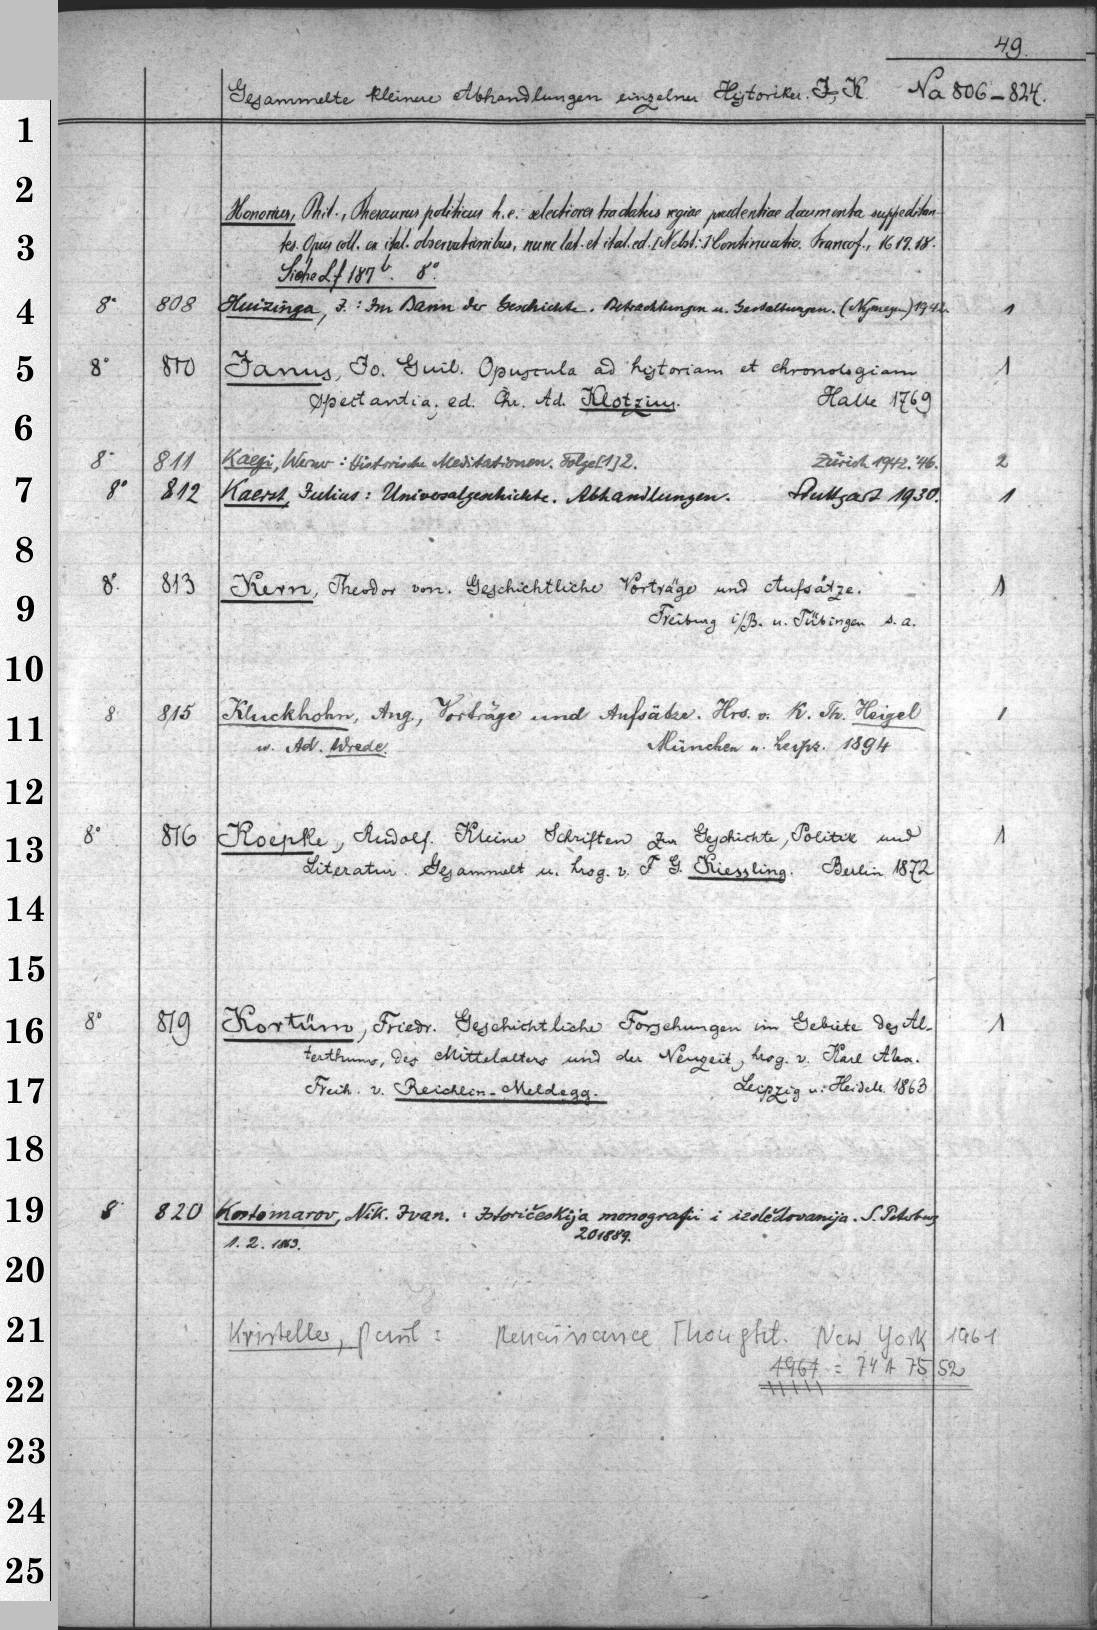 49.
Gesammelte kleinere Abhandlungen einzelner Historiker. I, K. Na 806-824.
1
2
Honorius, Phil., Thesaurus politicus h. e. selectiores tractatus regiae prudentiae documenta suppeditan-
3
tes. Opus coll. ex ital. observationibus, nunc lat. et ital. ed. [Nebst:] Continuatio. Francof., 1617.18.
Siehe Lf 187 b. 8°
4 8° 808 Huizinga, J.: Im Bann der Geschichte. Betrachtungen u. Gestaltungen. (Nijmegen) 1942. 1
5 8° 810 Janus, Jo. Guil. Opuscula ad historiam et chronologiam 1
spectantia, ed. Chr. Ad. Klotzius. Halle 1769
6
8° 811 Kaegi, Werner: Historische Meditationen. Folge [1] 2. Zürich 1942. '46. 2
7 8° 812 Kaerst, Julius: Universalgeschichte. Abhandlungen. Stuttgart 1930. 1
8
8° 813 Kern, Theodor von. Geschichtliche Vorträge und Aufsätze. 1
9
Freiburg i/B. u. Tübingen s. a.
10
8 815 Kluckhohn, Aug., Vorträge und Aufsätze. Hrs. v. K. Th. Heigel 1
11
u. Ad. Wrede. München u. Leipz. 1894
12
8° 816 Koepke, Rudolf. Kleine Schriften zur Geschichte, Politik und 1
13
Literatur. Gesammelt u. hrsg. v. F. G. Kiessling. Berlin 1872
14
15
8° 819 Kortüm, Friedr. Geschichtliche Forschungen im Gebiete des Al- 1
16
terthums, des Mittelalters und der Neuzeit, hrsg. v. Karl Alex.
17 Freih. v. Reichlin-Meldegg. Leipzig u. Heidelb. 1863
18
19 8° 820 Kostomarov, Nik. Ivan.: Istoričeskija monografii i izslědovanija. S. Petersburg
1. 2. 1863. 20 1889.
20
21 Kristeller, Paul: Renaissance Thought. New York 1961
1961 = 74 A 7552
22
23
24
25